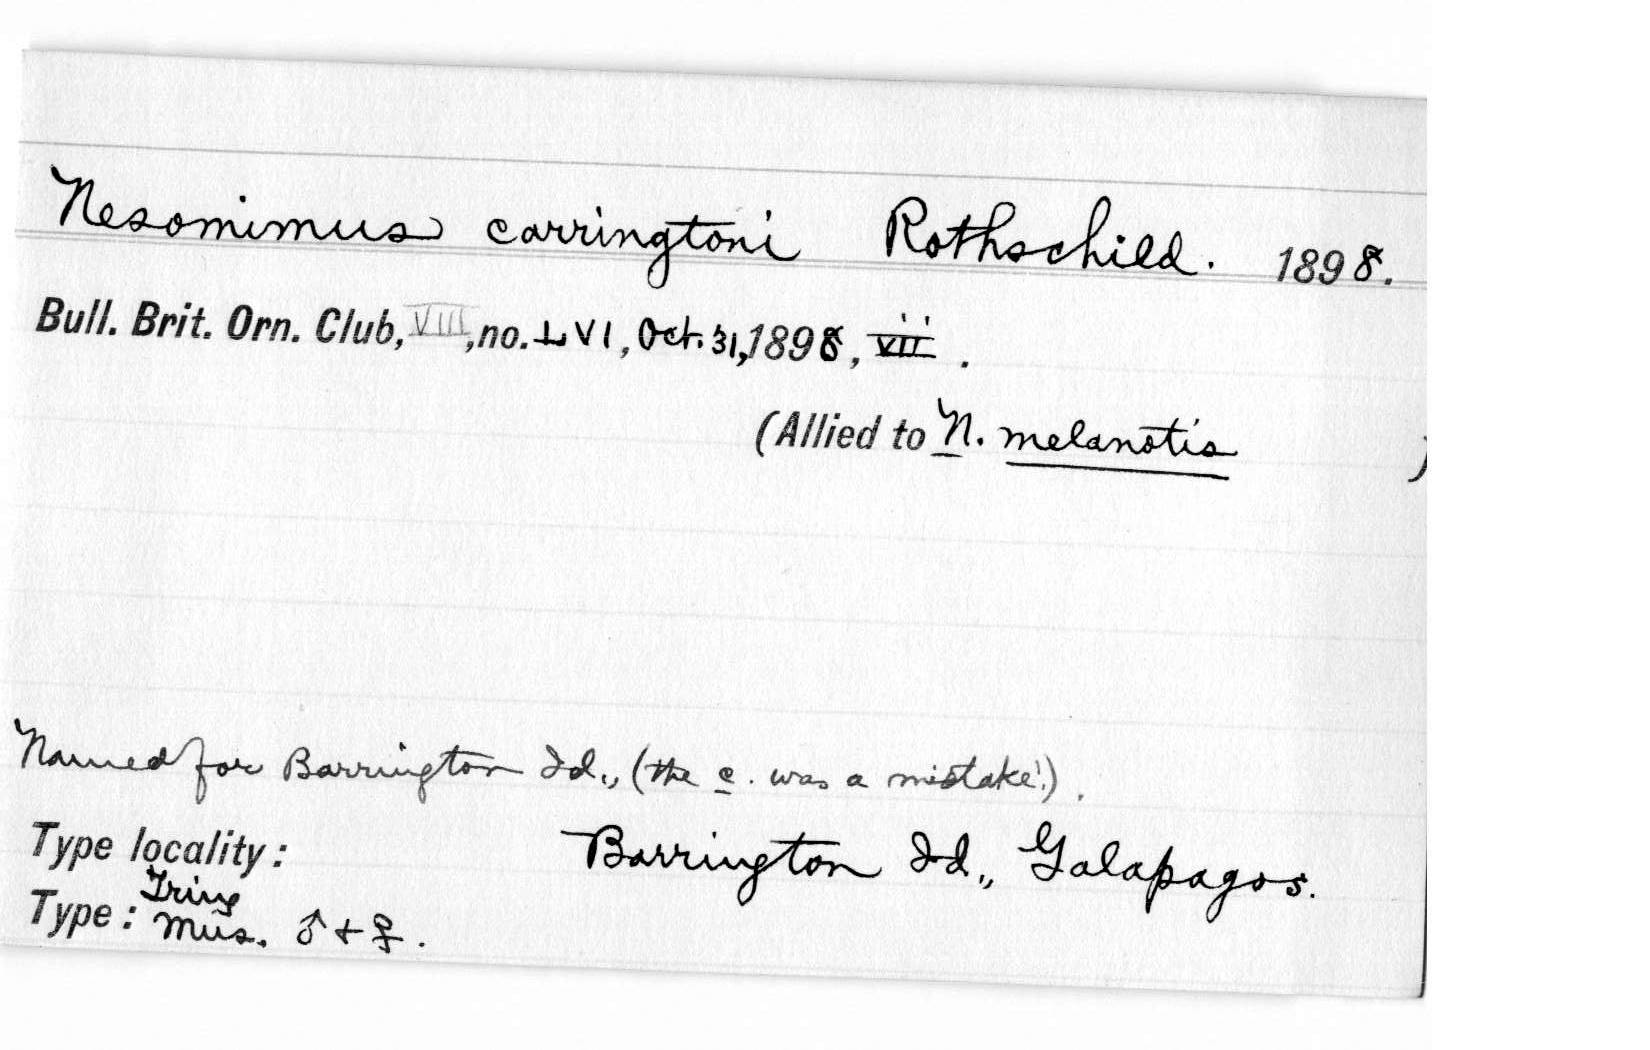 Nesomimus carringtoni Rothschild. 1898.
Bull. Brit. Orn. Club, VIII, no. LVI, Oct. 31, 1898, vii.
(Allied to N. melanotis )
Named for Barrington Id., (the c. was a mistake!).
Type locality: Barrington Id., Galapagos.
Type: Tring Mus. ♂ + ♀.